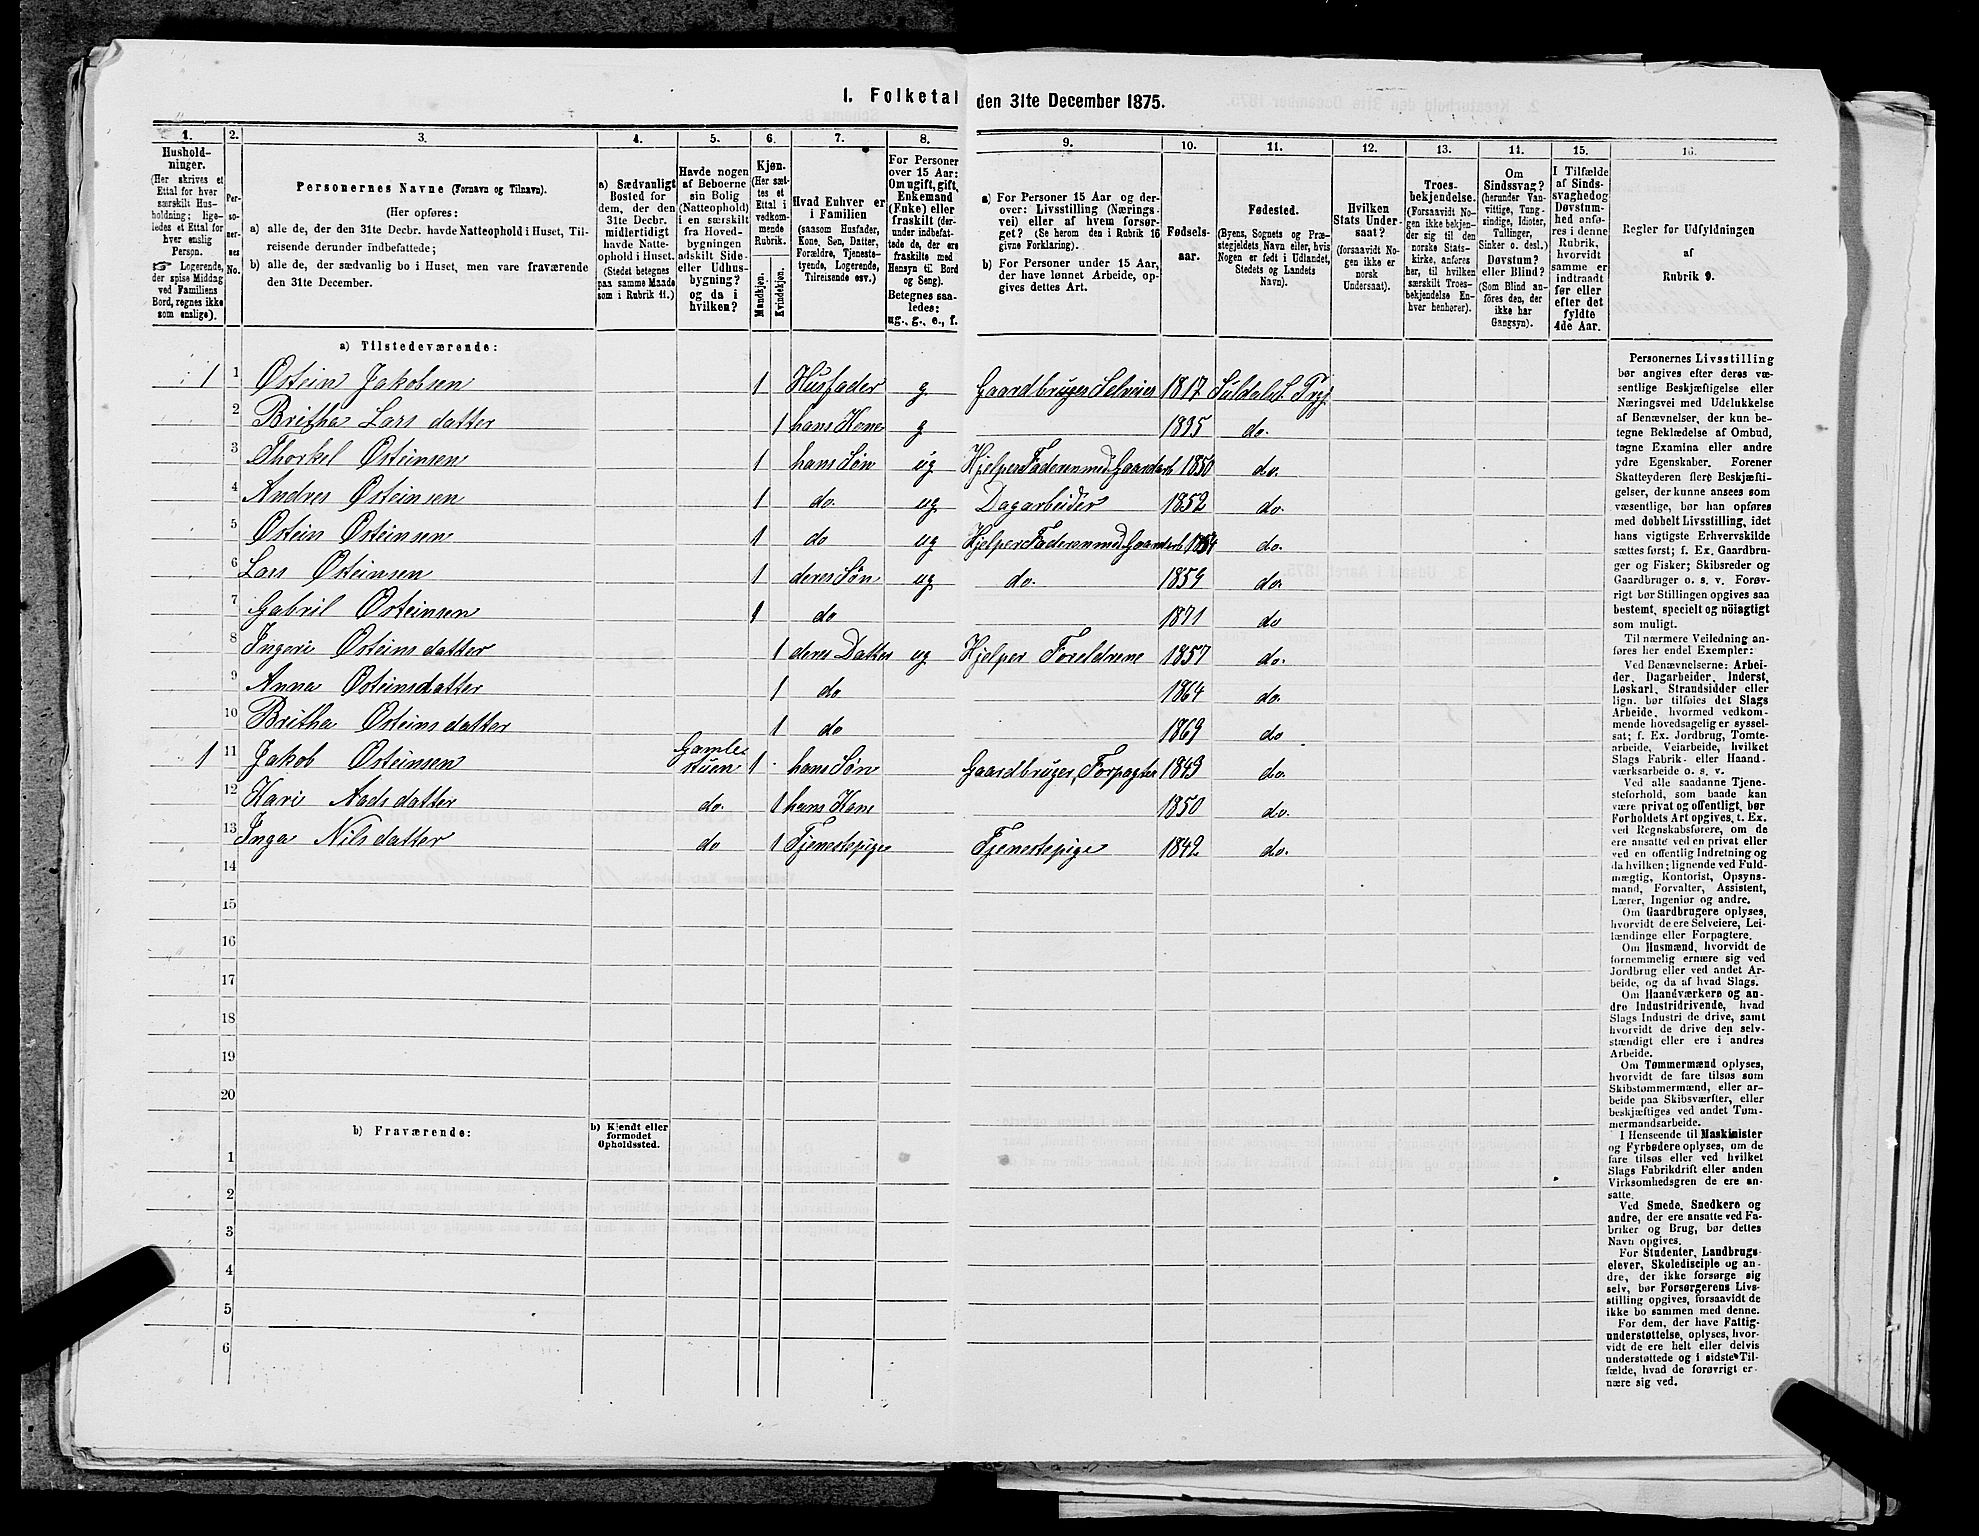 I. Folketal den 31te December 1875.
1. 2. 3. 4. 5. 6. 7. 8. 9. 10. 11. 12. 13. 14. 15. 16.
Husholdninger.
(Her skrives et
Ettal for hver
særskilt Husholdning; ligeledes
et Ettal for
hver enslig
Person.
☞ Logerende,
der spise Middag
ved Familiens
Bord, regnes ikke
som enslige).
Personernes No.
Personernes Navne (Fornavn og Tilnavn).
(Her opføres:
a) alle de, der den 31te Decbr. havde Natteophold i Huset, Tilreisende
derunder indbefattede;
b) alle de, der sædvanlig bo i Huset, men vare fraværende
den 31te December.
a) Sædvanligt
Bosted for
dem, der den
31te Decbr.
midlertidigt
havde Natteophold
i Huset.
(Stedet betegnes
paa samme Maade
som i Rubrik 11.)
Havde nogen
af Beboerne
sin Bolig
(Natteophold)
i en særskilt
fra Hovedbygningen
adskilt Side-
eller Udhusbygning?
og da i
hvilken?
Kjøn.
(Her sættes
et
Ettal i
vedkommende
Rubrik.
Mandkjøn.
Kvindekjøn.
Hvad Enhver er
i Familien
(saasom Husfader,
Kone, Søn, Datter,
Forældre, Tjenestetyende,
Logerende,
Tilreisende osv.)
For Personer
over 15 Aar:
Om ugift, gift,
Enkemand
(Enke) eller
fraskilt (derunder
indbefattede
de, der ere
fraskilte med
Hensyn til Bord
og Seng).
Betegnes saaledes:
ug., g., e., f.
a) For Personer 15 Aar og derover:
Livsstilling (Næringsvei)
eller af hvem forsørget?
(Se herom den i Rubrik 16
givne Forklaring).
b) For Personer under 15 Aar,
der have lønnet Arbeide, opgives
dettes Art.
Fødselsaar.
Fødested.
(Byens, Sognets og Præstegjeldets
Navn eller, hvis
Nogen er født i Udlandet,
Stedets og Landets
Navn).
Hvilken
Stats Undersaat?
(forsaavidt Nogen
ikke er
norsk
Undersaat).
Troesbekjendelse.
(Forsaavidt Nogen
ikke bekjender
sig til den
norske Statskirke,
anføres
her, til hvilken
særskilt Troesbekjendelse
Enhver
henhører).
Om
Sindssvag?
(herunder Vanvittige,
Tungsindige,
Idioter,
Tullinger,
Sinker o. desl.)
Døvstum?
eller Blind?
(Som Blind anføres
den, der
ikke har
Gangsyn).
I Tilfælde
af Sindssvaghed
og
Døvstumhed
anføres
i denne
Rubrik,
hvorvidt
samme er
indtraadt
før eller
efter det
fyldte
4de Aar.
Regler for Udfyldningen
af
Rubrik 9.
a) Tilstedeværende:
1 1 Østein Jakobsen 1 Husfader g Gaardbruger Selveier 1817 Suldalsl. Prgj.
2 Britha Larsdatter 1 hans Kone g 1835 do.
3 Thorkel Østeinsen 1 hans Søn ug Hjelper Faderen med Gaardarb 1850 do.
4 Andres Østeinsen 1 do. ug Dagarbeider 1852 do.
5 Østein Østeinsen 1 do ug Hjelper Faderen med Gaardarb 1854 do.
6 Lars Østeinsen 1 deres Søn ug do. 1859 do.
7 Gabril Østeinsen 1 do 1871 do
8 Ingeri Østeinsdatter 1 deres Datter ug Hjelper Foreldrene 1857 do.
9 Anna Østeinsdatter 1 do 1864 do.
10 Britha Østeinsdatter 1 do 1869 do
1 11 Jakob Østeinsen Gamlestuen 1 hans Søn Gaardbruger, Forpagter 1843 do.
12 Kari Aadsdatter do. 1 hans Kone 1850 do.
13 Inga Nilsdatter do 1 Tjenestepige Tjenestepige 1842 do.
14
15
16
17
18
19
20
b) Fraværende:
b) Kjendt eller
formodet
Opholdssted.
1
2
3
4
5
6
Personernes Livsstilling
bør angives efter deres væsentlige
Beskjæftigelse eller
Næringsvei med Udelukkelse
af Benævnelser, der kun betegne
Beklædelse af Ombud,
tagne Examina eller andre
ydre Egenskaber. Forener
Skatteyderen flere Beskjæftigelser,
der kunne ansees som
væsentlige, bør han opføres
med dobbelt Livsstilling, idet
hans vigtigste Erhvervskilde
sættes først; f. Ex. Gaardbruger
og Fisker; Skibsreder og
Gaardbruger o. s. v. Forøvrigt
bør Stillingen opgives saa
bestemt, specielt og nöiagtigt
som muligt.
Til nærmere Veiledning anføres
her endel Exempler:
Ved Benævnelserne: Arbeider,
Dagarbeider, Inderst,
Løskarl, Strandsidder eller
lign. bør tilføies det Slags
Arbeide, hvormed vedkommende
hovedsagelig er sysselsat;
f. Ex. Jordbrug, Tomtearbeide,
Veiarbeide, hvilket
Slags Fabrik- eller Haandværksarbeide
o. s. v.
Ved alle saadanne Tjenesteforhold,
som baade kan
være privat og offentligt, bør
Forholdets Art opgives, t. Ex.
ved Regnskabsførere, om de
ere ansatte ved en privat eller
ved en offentlig Indretning og
da hvilken; lignende ved Fuldmægtig,
Kontorist, Opsynsmand,
Forvalter, Assistent,
Lærer, Ingeniør og andre.
Om Gaardbrugere oplyses,
hvorvidt de ere Selveiere, Leilændinge
eller Forpagtere.
Om Husmænd, hvorvidt de
fornemmelig ernære sig ved
Jordbrug eller ved andet Arbeide,
og da af hvad Slags.
Om Haandværkere og andre
Industridrivende, hvad
Slags Industri de drive, samt
hvorvidt de drive den selvstændigt
eller ere i andres
Arbeide.
Om Tømmermænd oplyses,
hvorvidt de fare tilsøs som
Skibstømmermænd, eller arbeide
paa Skibsværfter, eller
beskjæftiges ved andet Tømmermandsarbeide.
I Henseende til Maskinister
og Fyrbødere oplyses, om de
fare tilsøs eller ved hvilket
Slags Fabrikdrift eller anden
Virksomhedsgren de ere ansatte.
Ved Smede, Snedkere og
andre, der ere ansatte ved Fabriker
og Brug, bør dettes
Navn opgives.
For Studenter, Landbrugselever,
Skoledisciple og andre,
der ikke forsørge sig
selv, bør Forsørgerens Livsstilling
opgives, forsaavidt de
ikke bo sammen med denne.
For dem, der have Fattigunderstøttelse,
oplyses, hvorvidt
de ere helt eller delvis
understøttede og i sidste Tilfælde,
hvad de forøvrigt ernære
sig ved.